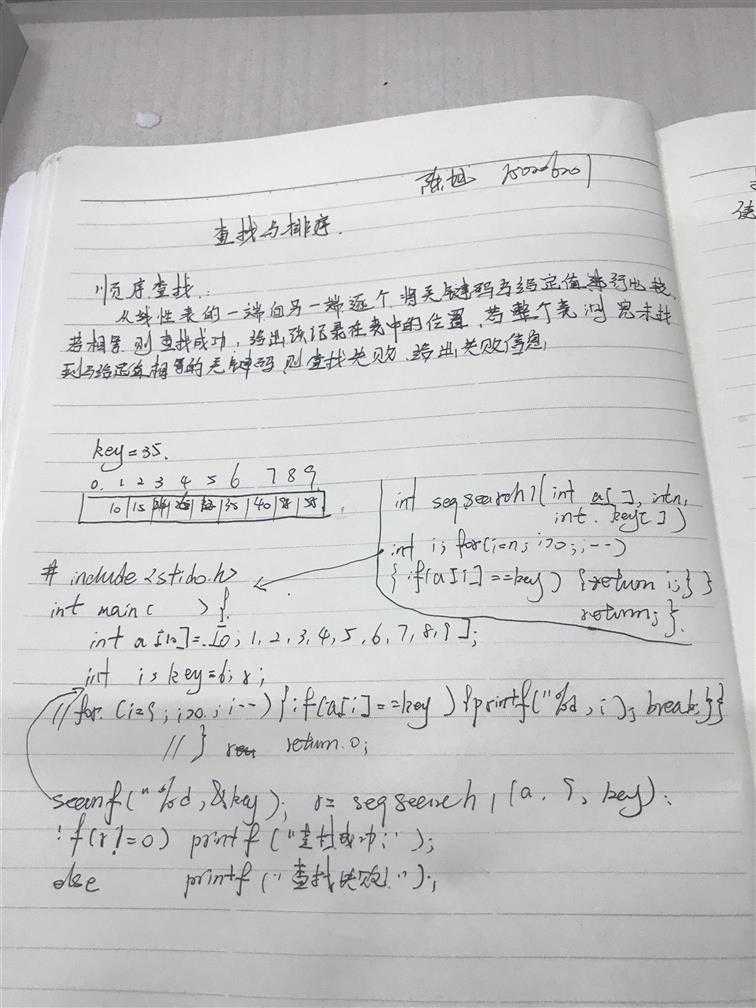 陈旭
查找与排序.
顺序查找:
从线性表的一端向另一端逐个将关键码与给定值进行比较,
若相等则查找成功,给出该记录在表中的位置,若整个表测完未找
到与给定值相等的关键码则查找失败,给出失败信息,
key=35.
0. 1 2 3 4 5 6 7 8 9
10 15 35 40
int seqsearch1(int a[], int n,
int key[])
int i; for(i=n; i>0; i--)
{if(a[i]==key) {return i;}}
return; }.
# include <stido.h>
int main( ) {
int a[10]=[0; 1, 2, 3, 4, 5, 6, 7, 8, 9];
int i; key=6; r;
//for (i=9; i>0; i--) {if(a[i]==key) {printf("%d, i); break;}}
// } return 0;
scanf("%d, &key); r= seqseearch1(a. 9, key);
if(r!=0) printf("查找成功!");
else printf("查找失败!");
使